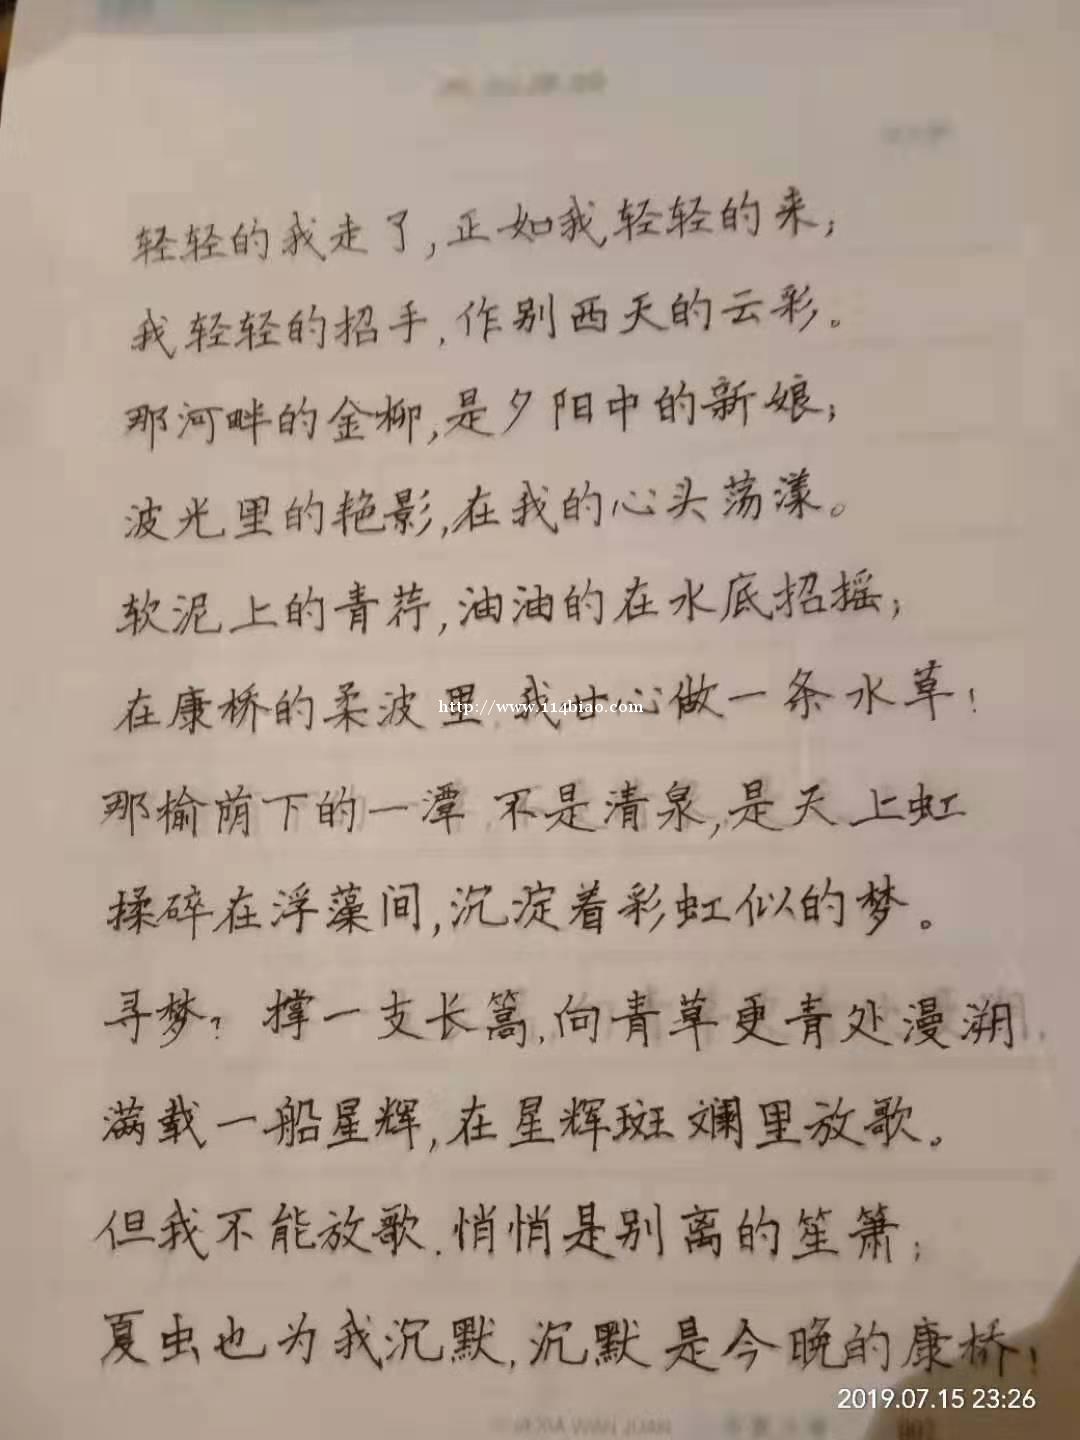 轻轻的我走了,正如我轻轻的来;
我轻轻的招手,作别西天的云彩。
那河畔的金柳,是夕阳中的新娘;
波光里的艳影,在我的心头荡漾。
软泥上的青荇,油油的在水底招摇;
在康桥的柔波里,我甘心做一条水草!
http://www.114biao.com
那榆荫下的一潭,不是清泉,是天上虹
揉碎在浮藻间,沉淀着彩虹似的梦。
寻梦?撑一支长篙,向青草更青处漫溯
满载一船星辉,在星辉斑斓里放歌。
但我不能放歌,悄悄是别离的笙箫;
夏虫也为我沉默,沉默是今晚的康桥!
2019.07.15 23:26